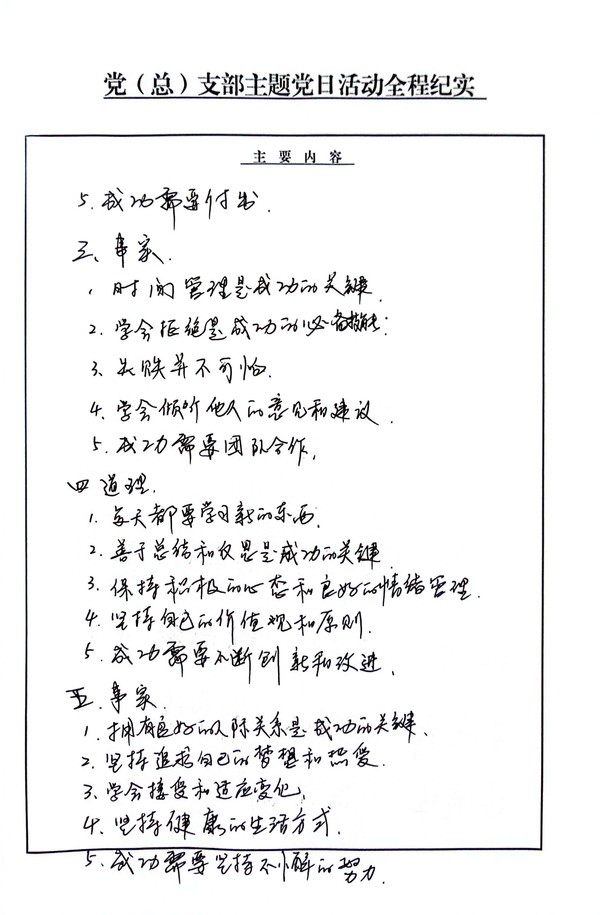 党（总）支部主题党日活动全程纪实
主要内容
5. 成功需要付出.
三、事家.
1. 时间管理是成功的关键.
2. 学会拒绝是成功的必备技能:
3、失败并不可怕.
4. 学会倾听他人的意见和建议.
5. 成功需要团队合作.
四 道理.
1. 每天都要学习新的东西.
2. 善于总结和反思是成功的关键.
3. 保持积极的心态和良好的情绪管理.
4. 坚持自己的价值观和原则.
5. 成功需要不断创新和改进.
五. 事家.
1. 拥有良好的人际关系是成功的关键.
2. 坚持追求自己的梦想和热爱.
3. 学会接受和适应变化.
4. 坚持健康的生活方式.
5. 成功需要坚持不懈的努力.